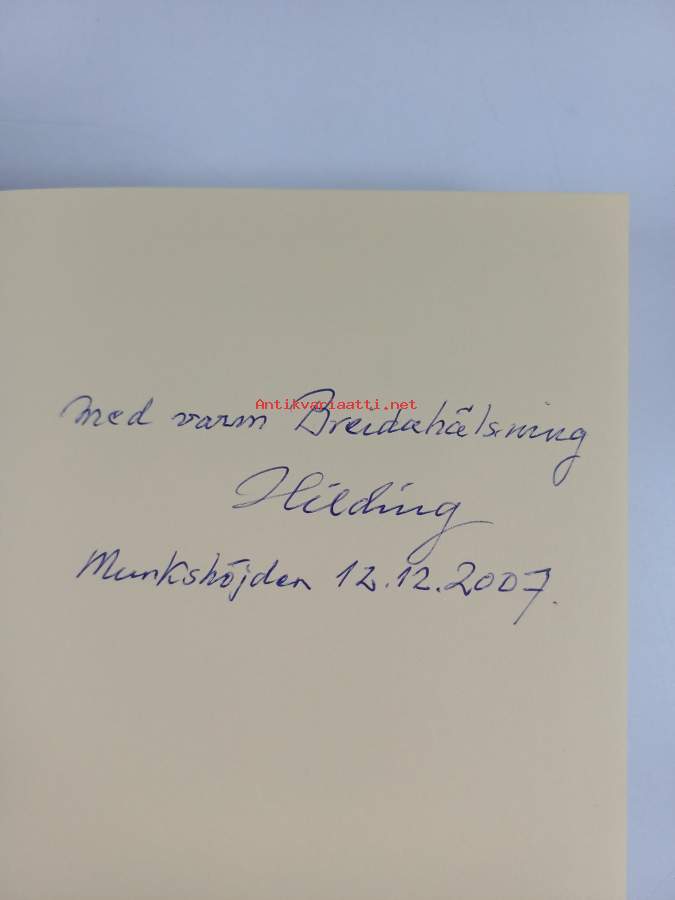 Antikvariaatti.net
med varm Breidahälsning
Hilding
Munkshöjden 12.12.2007.